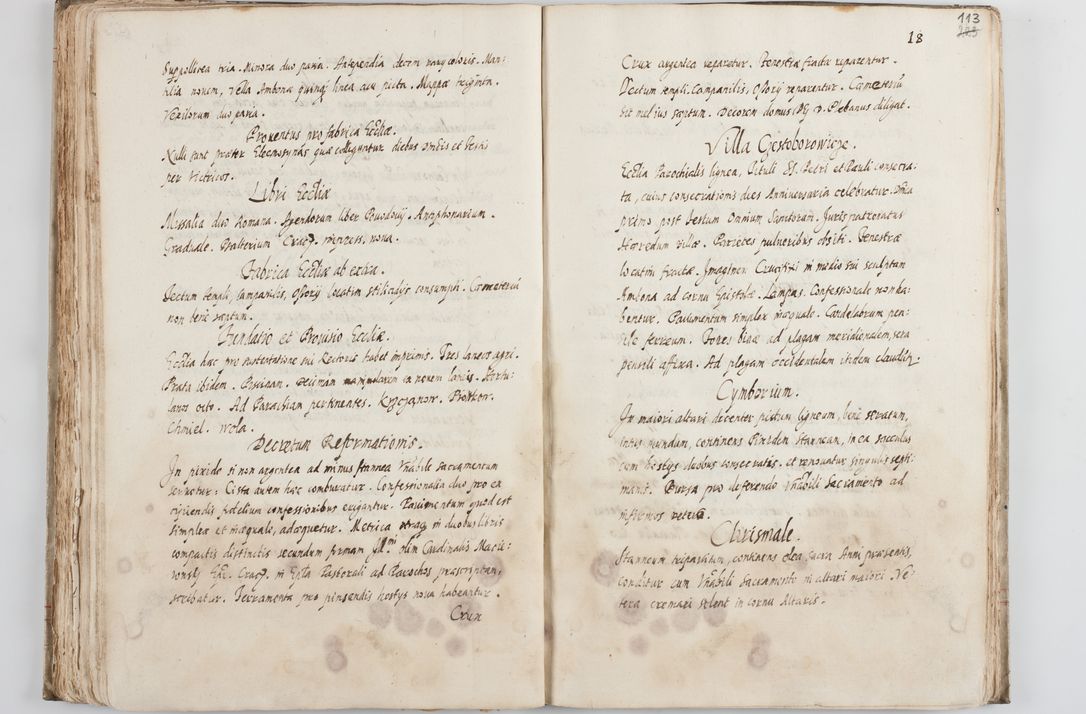 Suppellicea tria. Minora duo paria. Antependia decem vary coloris. Man-
tilia novem, Vella Ambonæ quinqȝ linea acu picta. Mappæ triginta.
Vexilorum duo paria.
Proventus pro fabrica Eccliæ.
Nulli sunt præter Elecmosynas quæ colliguntur diebus Dnicis et Festis
per victricos.
Libri Eccliæ
Missalia duo Romana. Agendorum liber Antiphonarium.
Graduale. Psalterium Crac. impress. nova.
Fabrica Eccliæ ab extra.
Tectum templi, campanilis, ossorij locatim stilicidijs consumpti. Cæmeterium
non bene septum.
Fundatio et Provisio Eccliæ.
Ecclia hæc pro sustentatione sui Rectoris habet inprimis. Tres laneos agri.
Prata ibidem. Piscinam. Decimam manipularem in novem laneis. Hortu-
lanos octo. Ad Parochiam pertinentes.
Chmiel. Wola.
Decretum Reformationis.
In pixide si non argentea ad minus stannea Vnabile sacramentum
servetur: Cista autem hæc comburatur. Confessionalia duo pro ex
cipiendis fidelium confessionibus erigantur. Pavimentum quod est
simplex et inæquale, adæquetur. Metrica in duobus libris
compactis distinctis secundum formam Illmi olim Cardinalis Macie-
iowsky Epi Crac. in Epla Pastorali ad Parochos præscriptam,
scribatur. Ferramenta pro pinsendis hostys nova habeantur.
Crux
113
18
Crux argentea reparetur. Fenestræ fractæ reparentur.
Tectum templi. Campanilis, ossorij reparentur. Cæmeterium
sit melius septum. Decorem domus D. Plebanus diligat.
Villa Gestoborowice.
Ecclia Parochialis lignea, Tituli SS. Petri et Pauli consecra-
ta, cuius consecrationis dies Anniversaria celebratur. Dnica
primo post festum Omnium Sanctorum. Juris patronatus
Hæredum villæ. Parietes pulveribus obsiti. Fenestræ
locatim fractæ. Imaginem Crucifixi in medio sui sculptam
Ambona ad cornu Epistolæ. Lampas. Confessionale non ha-
bentur. Pavimentum simplex inæquale. Candelabrum pen-
sile ferreum. Fores binæ ad plagam meridionalem, sera
pensili affixa. Ad plagam occidentalem itidem claudin
Cymborium.
In maiori altari decenter pictum ligneum, bene seratum,
intus mundum, continens Pixidem stanneam, in ea sacculus
cum hostys duobus consecratis. et renovantur singulis septi-
manis. Bursa pro deferendo Vnabili Sacramento ad
infirmos
Chrismale.
Stanneum tripartitum, continens olea sacra Anni præsentis,
conditur cum Vnabili Sacramento in altari maiori Ve-
tera cremari solent in cornu Altaris.